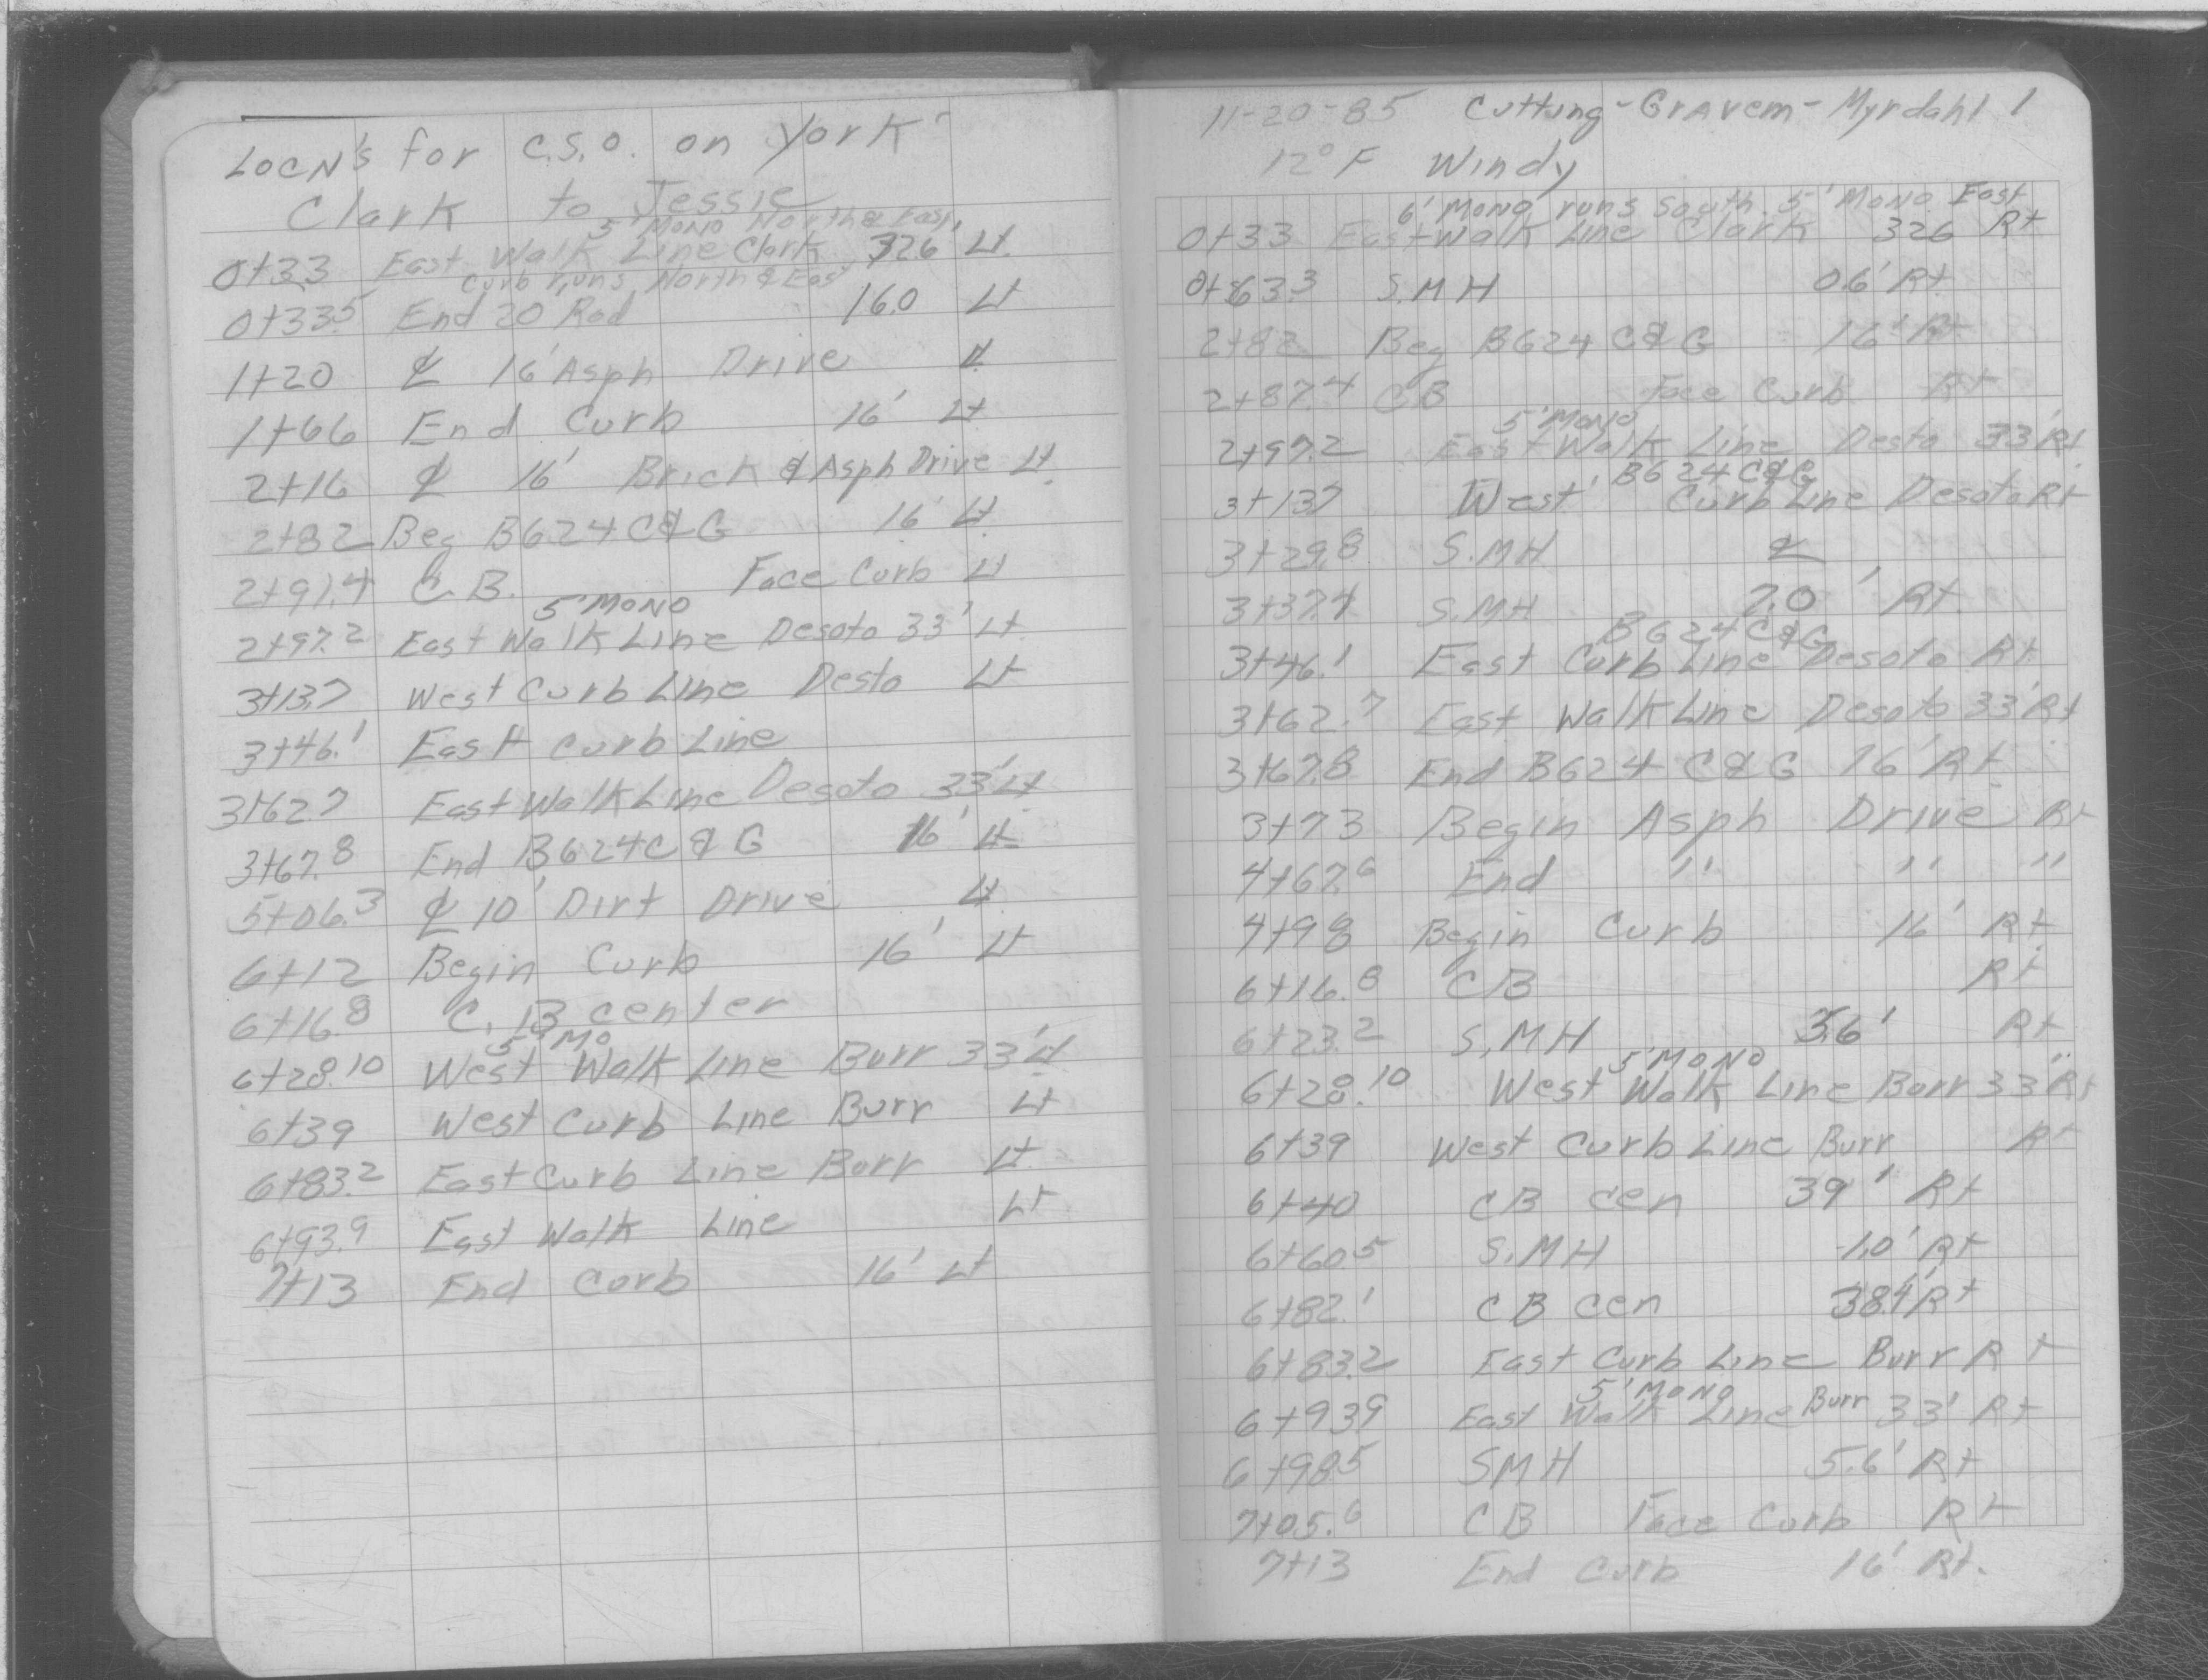 LOCN's for C.S.O. on York
Clark to Jessie
5' MONO North & East
0+33 East Walk Line Clark 32.6' Lt.
Curb runs North & East
0+33.5 End 20' Rad 16.0 Lt
1+20 ℄ 16' Asph Drive Lt.
1+66 End Curb 16' Lt
2+16 ℄ 16' Brick & Asph Drive Lt.
2+82 Beg B624 C&G 16' Lt
2+91.4 C.B. Face Curb Lt
5' MONO
2+97.2 East Walk Line Desoto 33' Lt
3+13.7 West Curb Line Desto Lt
3+46.1 East Curb Line
3+62.7 East Walk Line Desoto 33' Lt
3+67.8 End B624 C&G 16' Lt
5+06.3 ℄ 10' Dirt Drive Lt
6+12 Begin Curb 16' Lt
6+16.8 C.B center
5' MO
6+28.10 West Walk Line Burr 33' Lt
6+39 West Curb Line Burr Lt
6+83.2 East Curb Line Burr Lt
6+93.9 East Walk Line Lt
7+13 End Curb 16' Lt
11-20-85 Cutting - Gravem - Myrdahl 1
12° F Windy
6' MONO runs South. 5' MONO East
0+33 East Walk Line Clark 32.6 Rt
0+63.3 S.M H 0.6' Rt
2+82 Beg B624 C&G 16' Rt
2+87.4 CB Face Curb Rt
5' MONO
2+97.2 East Walk Line Desto 33' Rt
B624 C&G
3+13.7 West Curb Line Desoto Rt
3+29.8 S.MH ℄
3+37.4 S.MH 7.0' Rt.
B624 C&G
3+46.1 East Curb Line Desoto Rt
3+62.7 East Walk Line Desoto 33' Rt
3+67.8 End B624 C&G 16' Rt
3+73 Begin Asph Drive Rt
4+67.6 End " " "
4+98 Begin Curb 16' Rt
6+16.8 CB Rt
6+23.2 S.MH 3.6' Rt
5' MONO
6+28.10 West Walk Line Burr 33' Rt
6+39 West Curb Line Burr Rt
6+40 CB cen 39' Rt
6+60.5 S.MH 1.0' Rt
6+82.1 CB cen 38.4' Rt
6+83.2 East Curb Line Burr Rt
5' MONO
6+93.9 East Walk Line Burr 33' Rt
6+98.5 SMH 5.6' Rt
7+05.6 CB Face Curb Rt
7+13 End Curb 16' Rt.